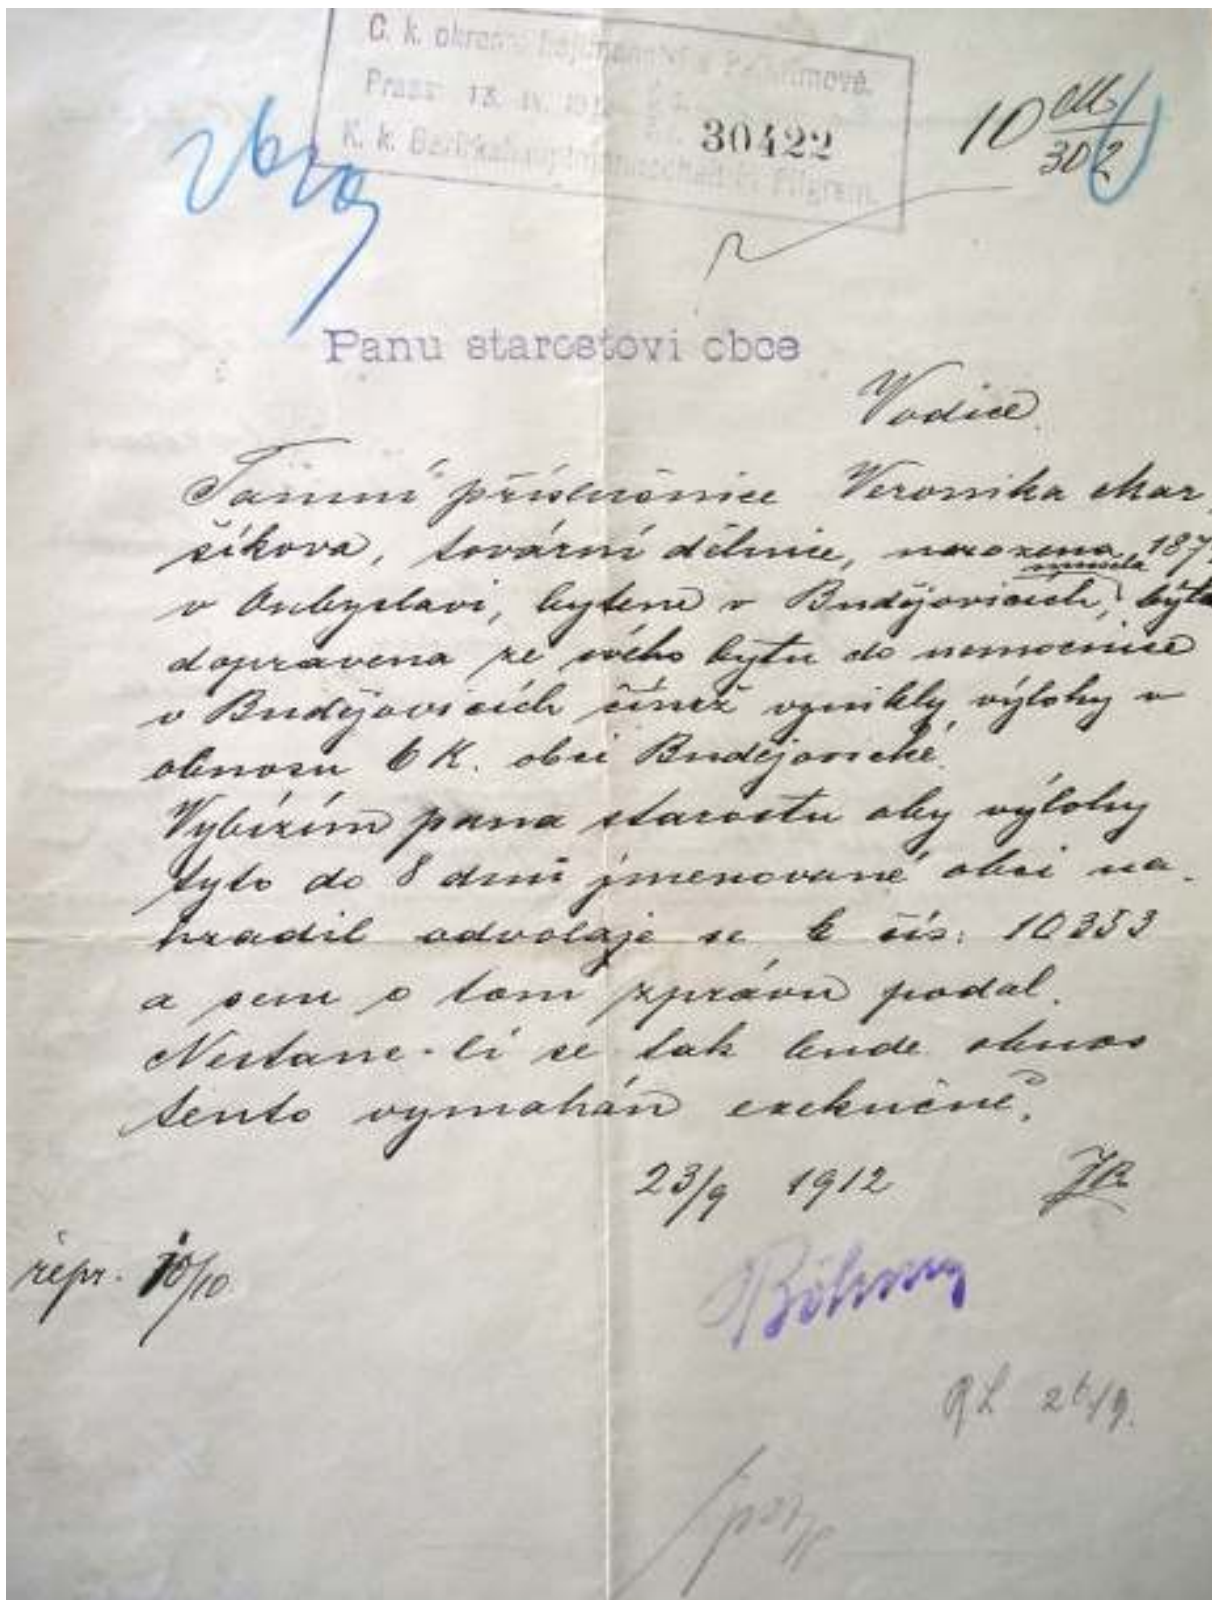 C. k. okresní hejtmanství v Pelhřimově.
Praes. 13. IX. 191
30422
K. k. Bezirkshauptmannschaft in Pilgram.
10
302
Panu starostovi obce
Vodice
Tamní příslušnice Veronika Mar
šíkova, tovární dělnice, narozena 187
v bytem v Budějovicích, byla
dopravena ze svého bytu do nemocnice
v Budějovicích čímž vznikly výlohy v
obnosu 6 K. obci Budějovické.
Vybízím pana starostu aby výlohy
tyto do 8 dnů jmenované obci na-
hradil odvolaje se k čís: 10353
a sem o tom zprávu podal.
Nestane-li se tak bude obnos
tento vymahán exekučně.
23/9 1912
repr. 10/10
Böhm
26/9.